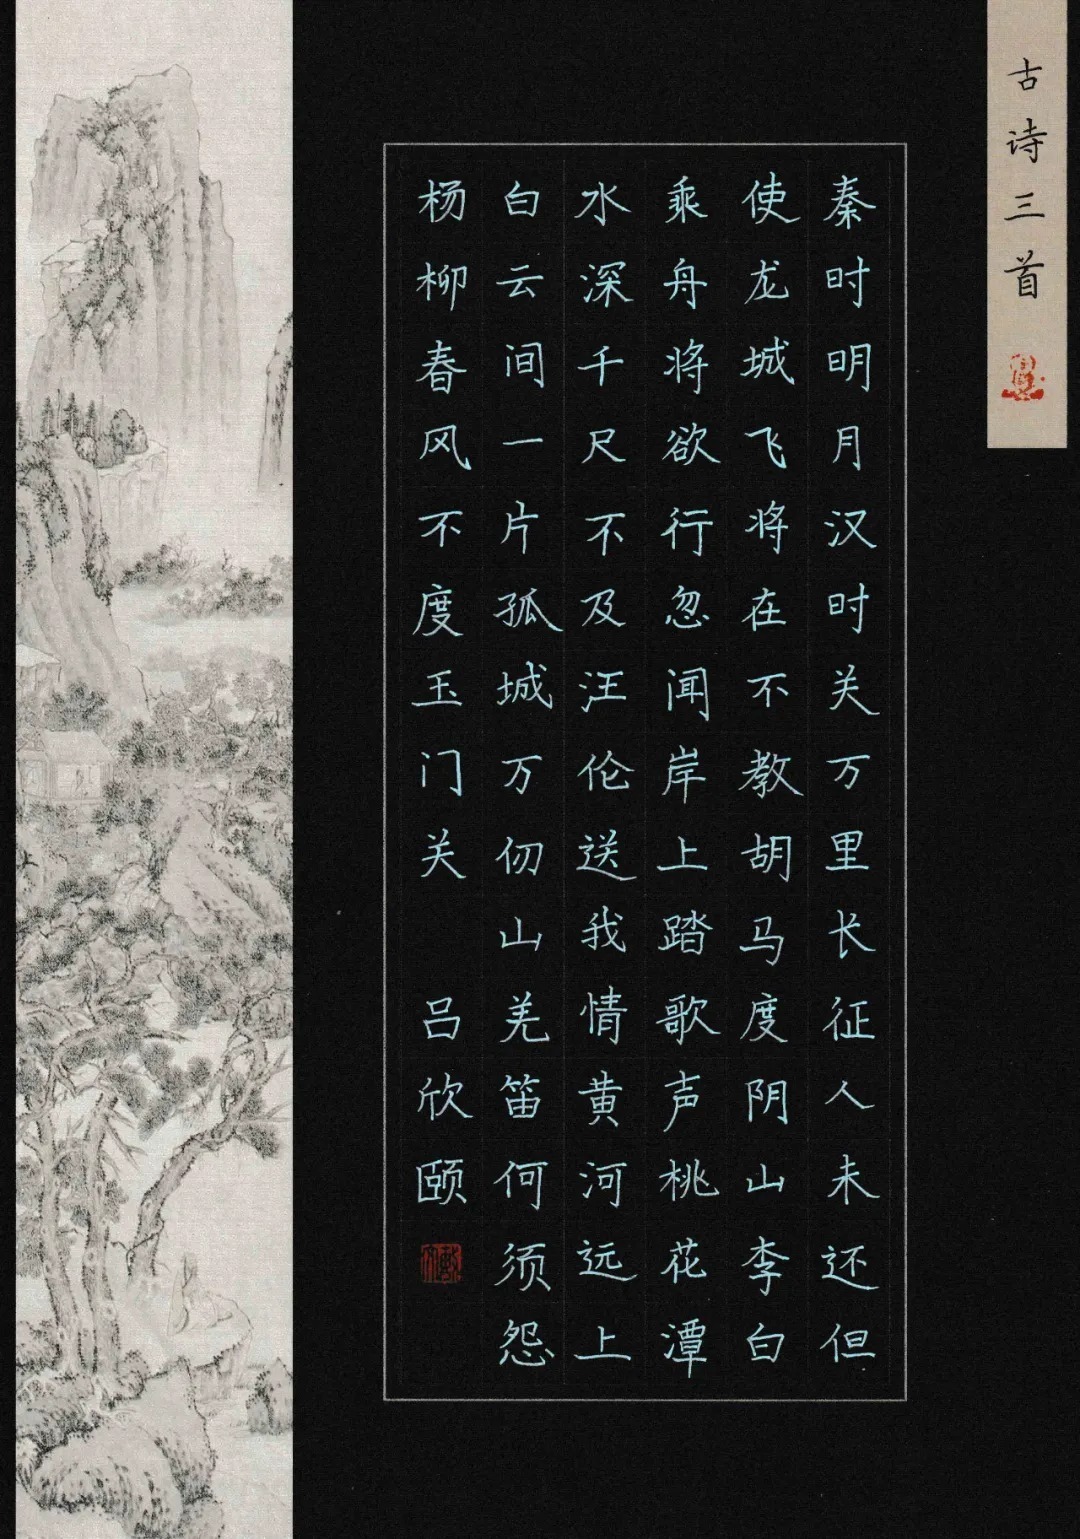 古诗三首
秦时明月汉时关万里长征人未还但
使龙城飞将在不教胡马度阴山李白
乘舟将欲行忽闻岸上踏歌声桃花潭
水深千尺不及汪伦送我情黄河远上
白云间一片孤城万仞山羌笛何须怨
杨柳春风不度玉门关 吕欣颐